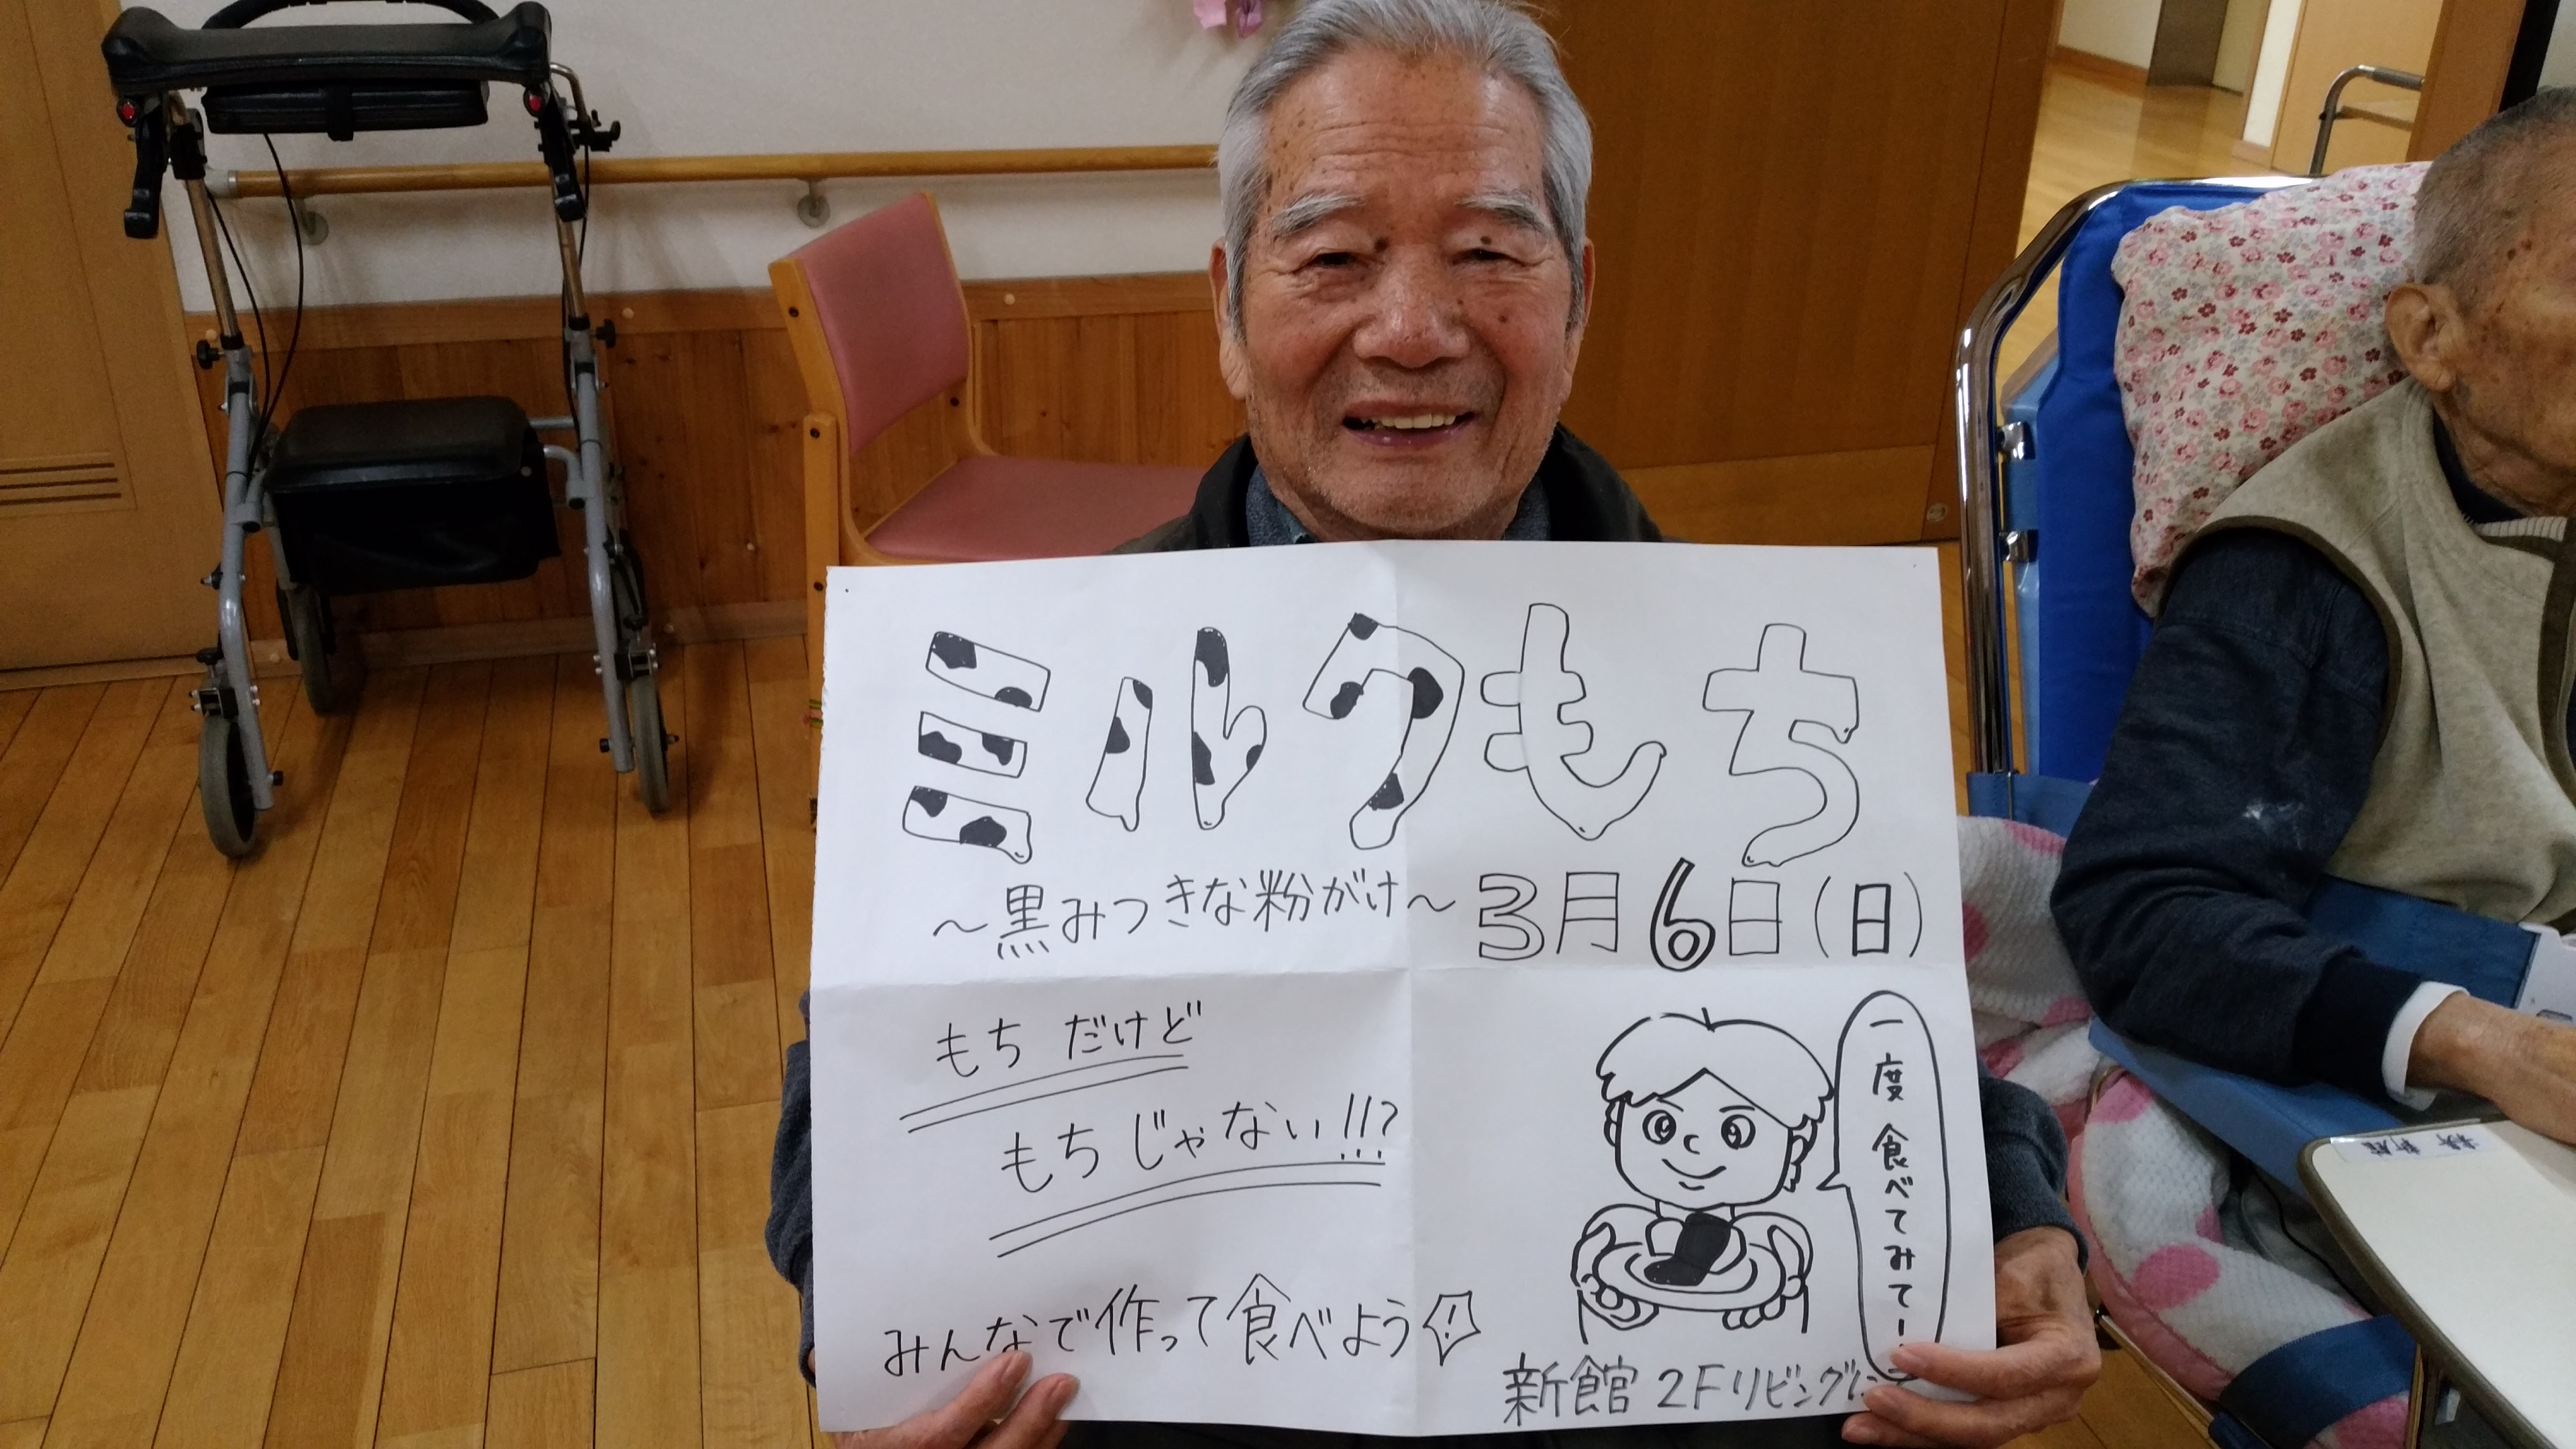 ミルクもち
～黒みつきな粉がけ～
3月6日(日)
もちだけど
もちじゃない!!!?
みんなで作って食べよう!
一度食べてみてー!
新館 2Fリビングに
新館